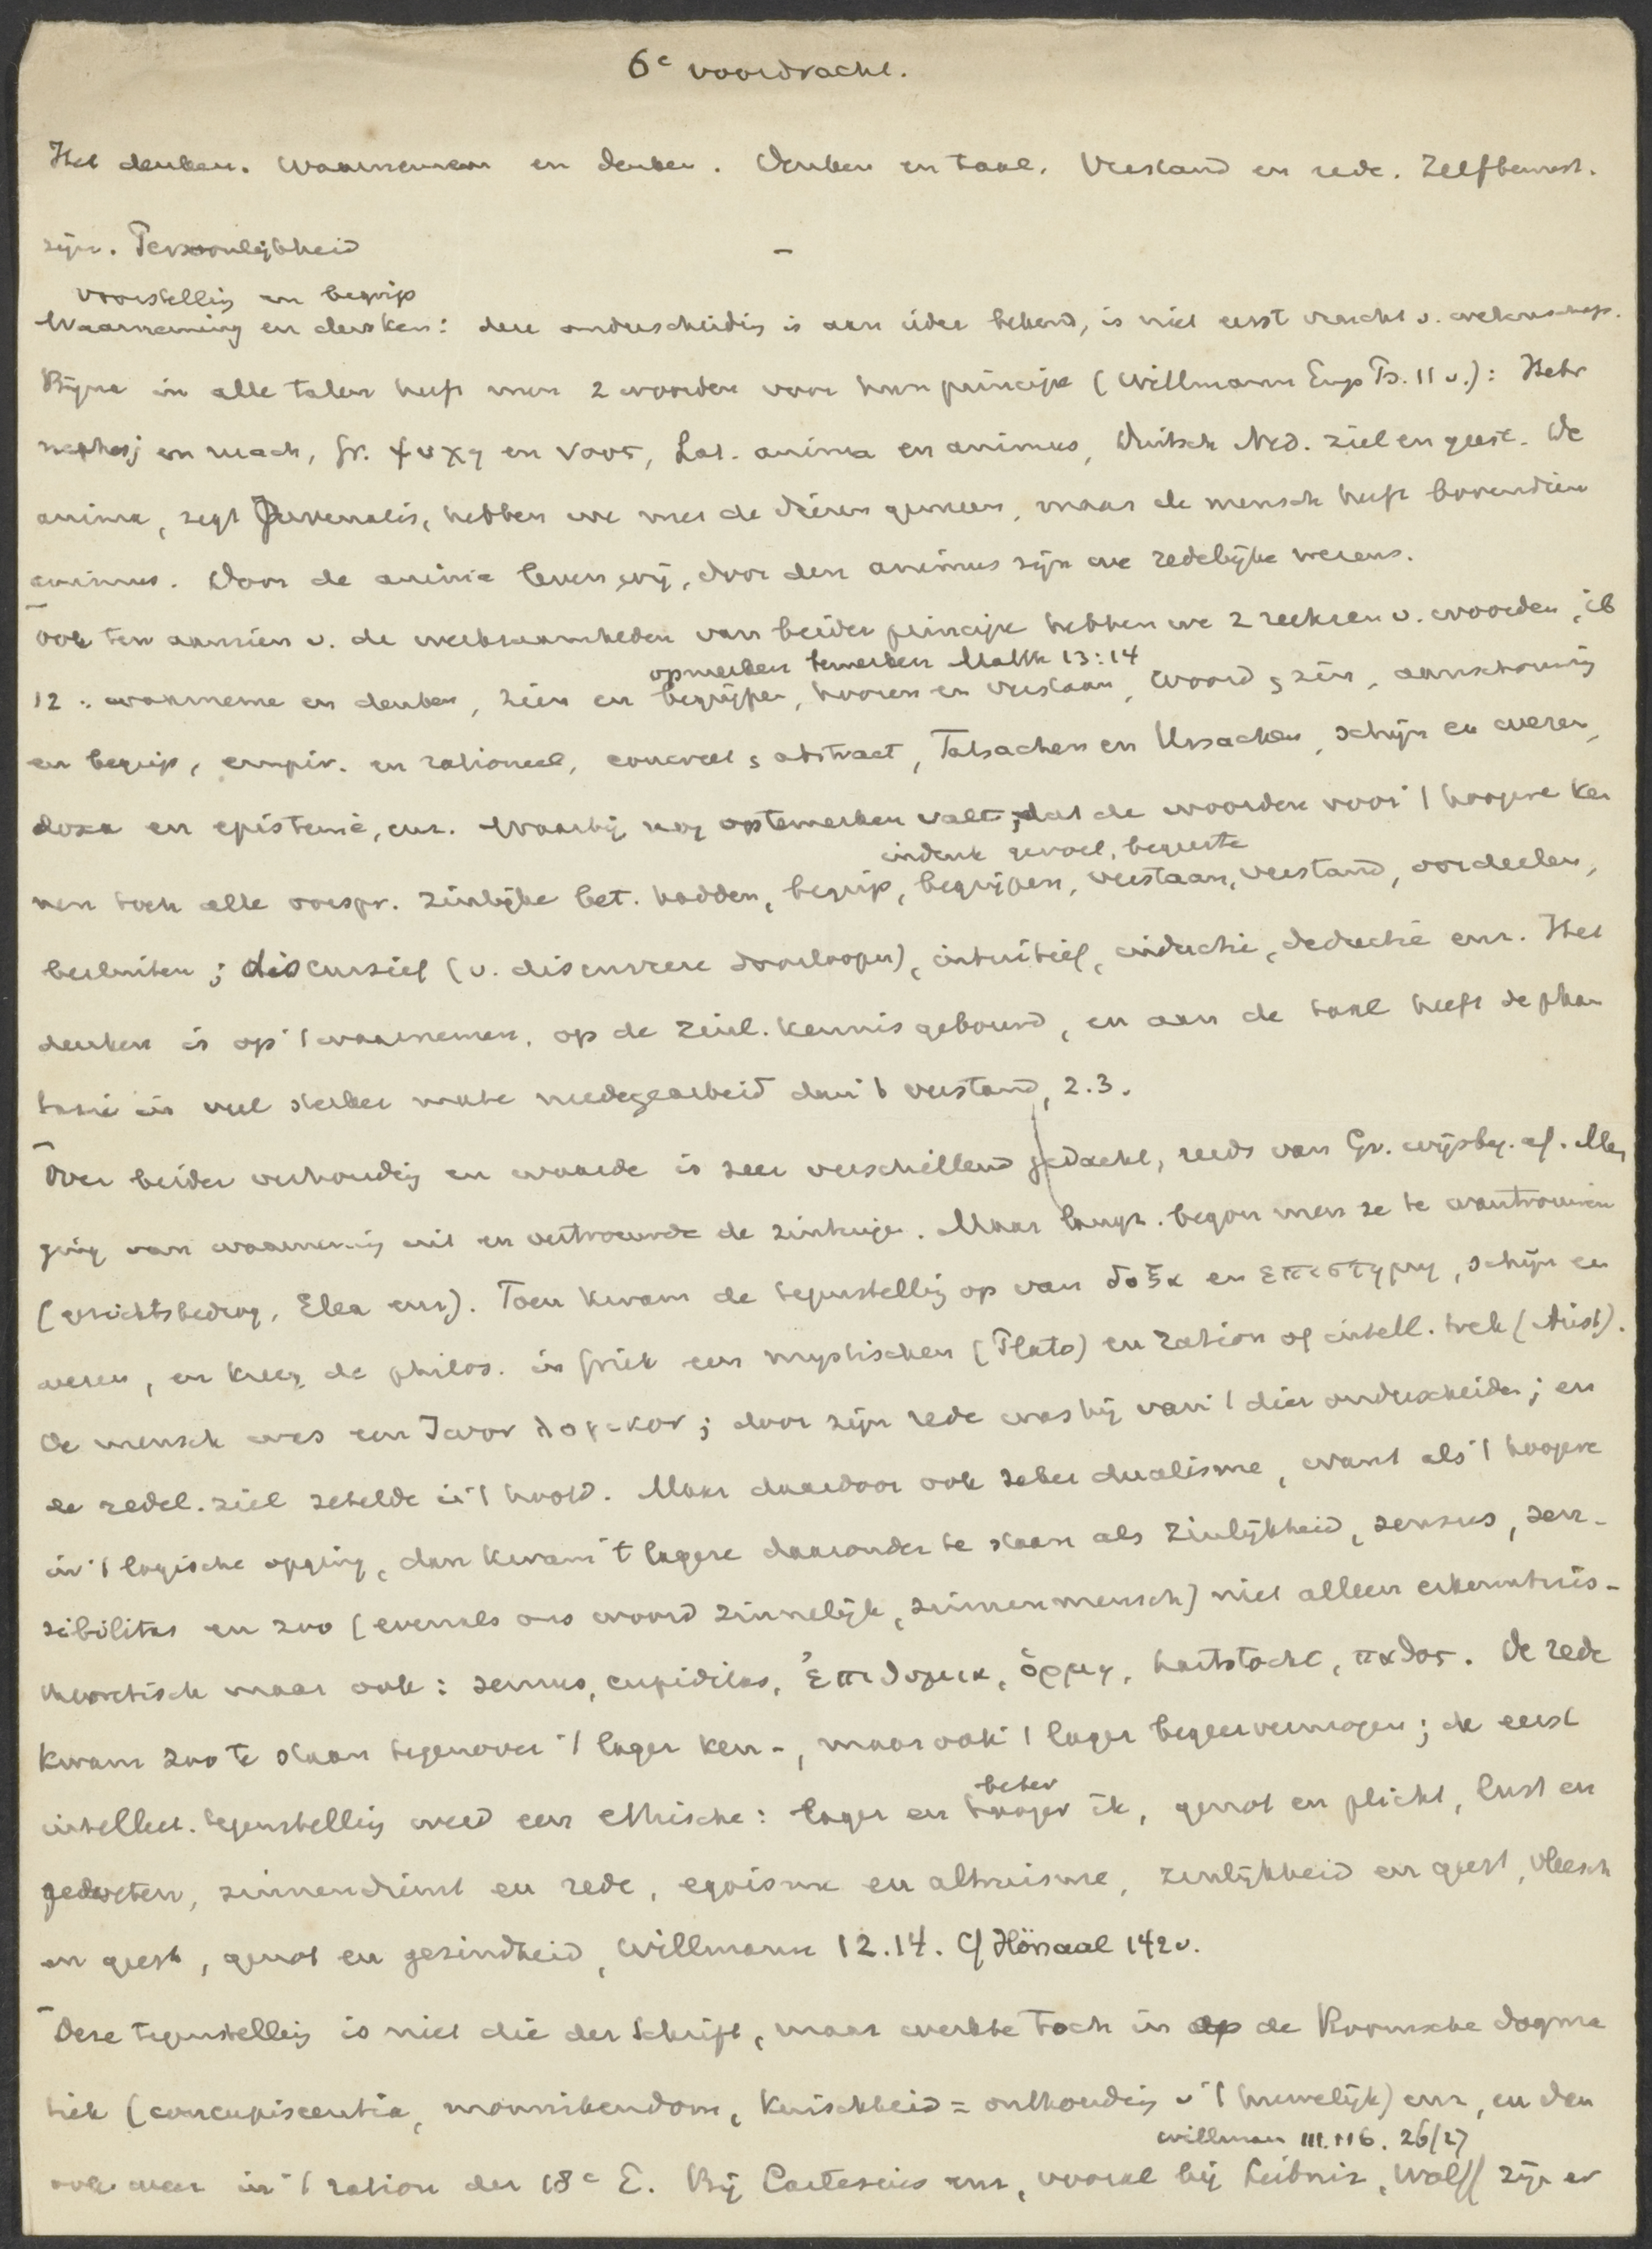 6e voordracht.
Het denken. Waarnemen en denken. Denken en taal. Verstand en rede. Zelfbewust.
zijn. Persoonlijkheid –
voorstelling en begrip
Waarneming en denken: deze onderscheiding is aan ieder bekend, is niet eerst vrucht v. wetenschap.
Bijna in alle talen heeft men 2 woorden voor hun principe (Willmann Emp Ps. 11 v.): Hebr
nephesj en ruach, Gr. ψυχη en νοος, Lat. anima en animus, Duitsch Ned. ziel en geest. De
anima, zegt Juvenalis, hebben we met de dieren gemeen, maar de mensch heeft bovendien
animus. Door de anima leven wij, door den animus zijn we redelijke wezens.
Ook ten aanzien v. de werkzaamheden van beider principe hebben we 2 reeksen v. woorden, ib
opmerken bemerken Matth 13:14
12: waarneme en denken, zien en begrijpen, hooren en verstaan, woord en zin, aanschouwing
en begrip, empir. en rationeel, concreet en abstract, Tatsachen en Ursachen, schijn en wezen,
doxa en epistemè, enz. Waarbij nog optemerken valt, dat de woorden voor 't hoogere ken
indruk gevoel, begeerte
nen toch alle oorspr. zinlijke bet. hadden, begrip, begrijpen, verstaan, verstand, oordeelen,
besluiten; discursief (v. discurrere doorloopen), intuitief, inductie, deductie enz. Het
denken is op 't waarnemen, op de zinl. kennis gebouwd, en aan de taal heeft de phan
tasie in veel sterker mate medegearbeid dan 't verstand, 2.3.
Over beider verhouding en waarde is zeer verschillend gedacht, reeds van Gr. wijsbg. af. Men
ging van waarneming uit en vertrouwde de zintuigen. Maar langz. begon men ze te wantrouwen
(gezichtsbedrog, Elea enz). Toen kwam de tegenstelling op van δοξα en επιστημη, schijn en
wezen, en kreeg de philos. in Griek een mystischen (Plato) en ration of intell. trek (Arist).
De mensch was een ζωον λογικον; door zijn rede was hij van 't dier onderscheiden; en
de redel. ziel zetelde in 't hoofd. Maar daardoor ook zeker dualisme, want als 't hoogere
in 't logische opging, dan kwam 't lagere daaronder te staan als zinlijkheid, sensus, sen-
sibilitas en zoo (evenals ons woord zinnelijk, zinnenmensch) niet alleen erkenntnis-
theoretisch maar ook: sensus, cupiditas, ἐπιθυμια, ὁρμη, hartstocht, παθος. De rede
kwam zoo te staan tegenover 't lager ken-, maar ook 't lager begeervermogen; de eerst
beter
intellect. tegenstelling werd een ethische: lager en hooger ik, genot en plicht, lust en
geweten, zinnendienst en rede, egoisme en altruisme, zinlijkheid en geest, vleesch
en geest, genot en gezindheid, Willmann 12.14. Cf Hörsaal 142 v.
Deze tegenstelling is niet die der Schrift, maar werkte toch in op de Roomsche dogma
tiek (concupiscentia, monnikendom, kuischheid = onthouding v 't huwelijk) enz, en dan
Willmann III.116. 26/27
ook weer in 't ration der 18e E. Bij Cartesius enz, vooral bij Leibniz, Wolff zijn er